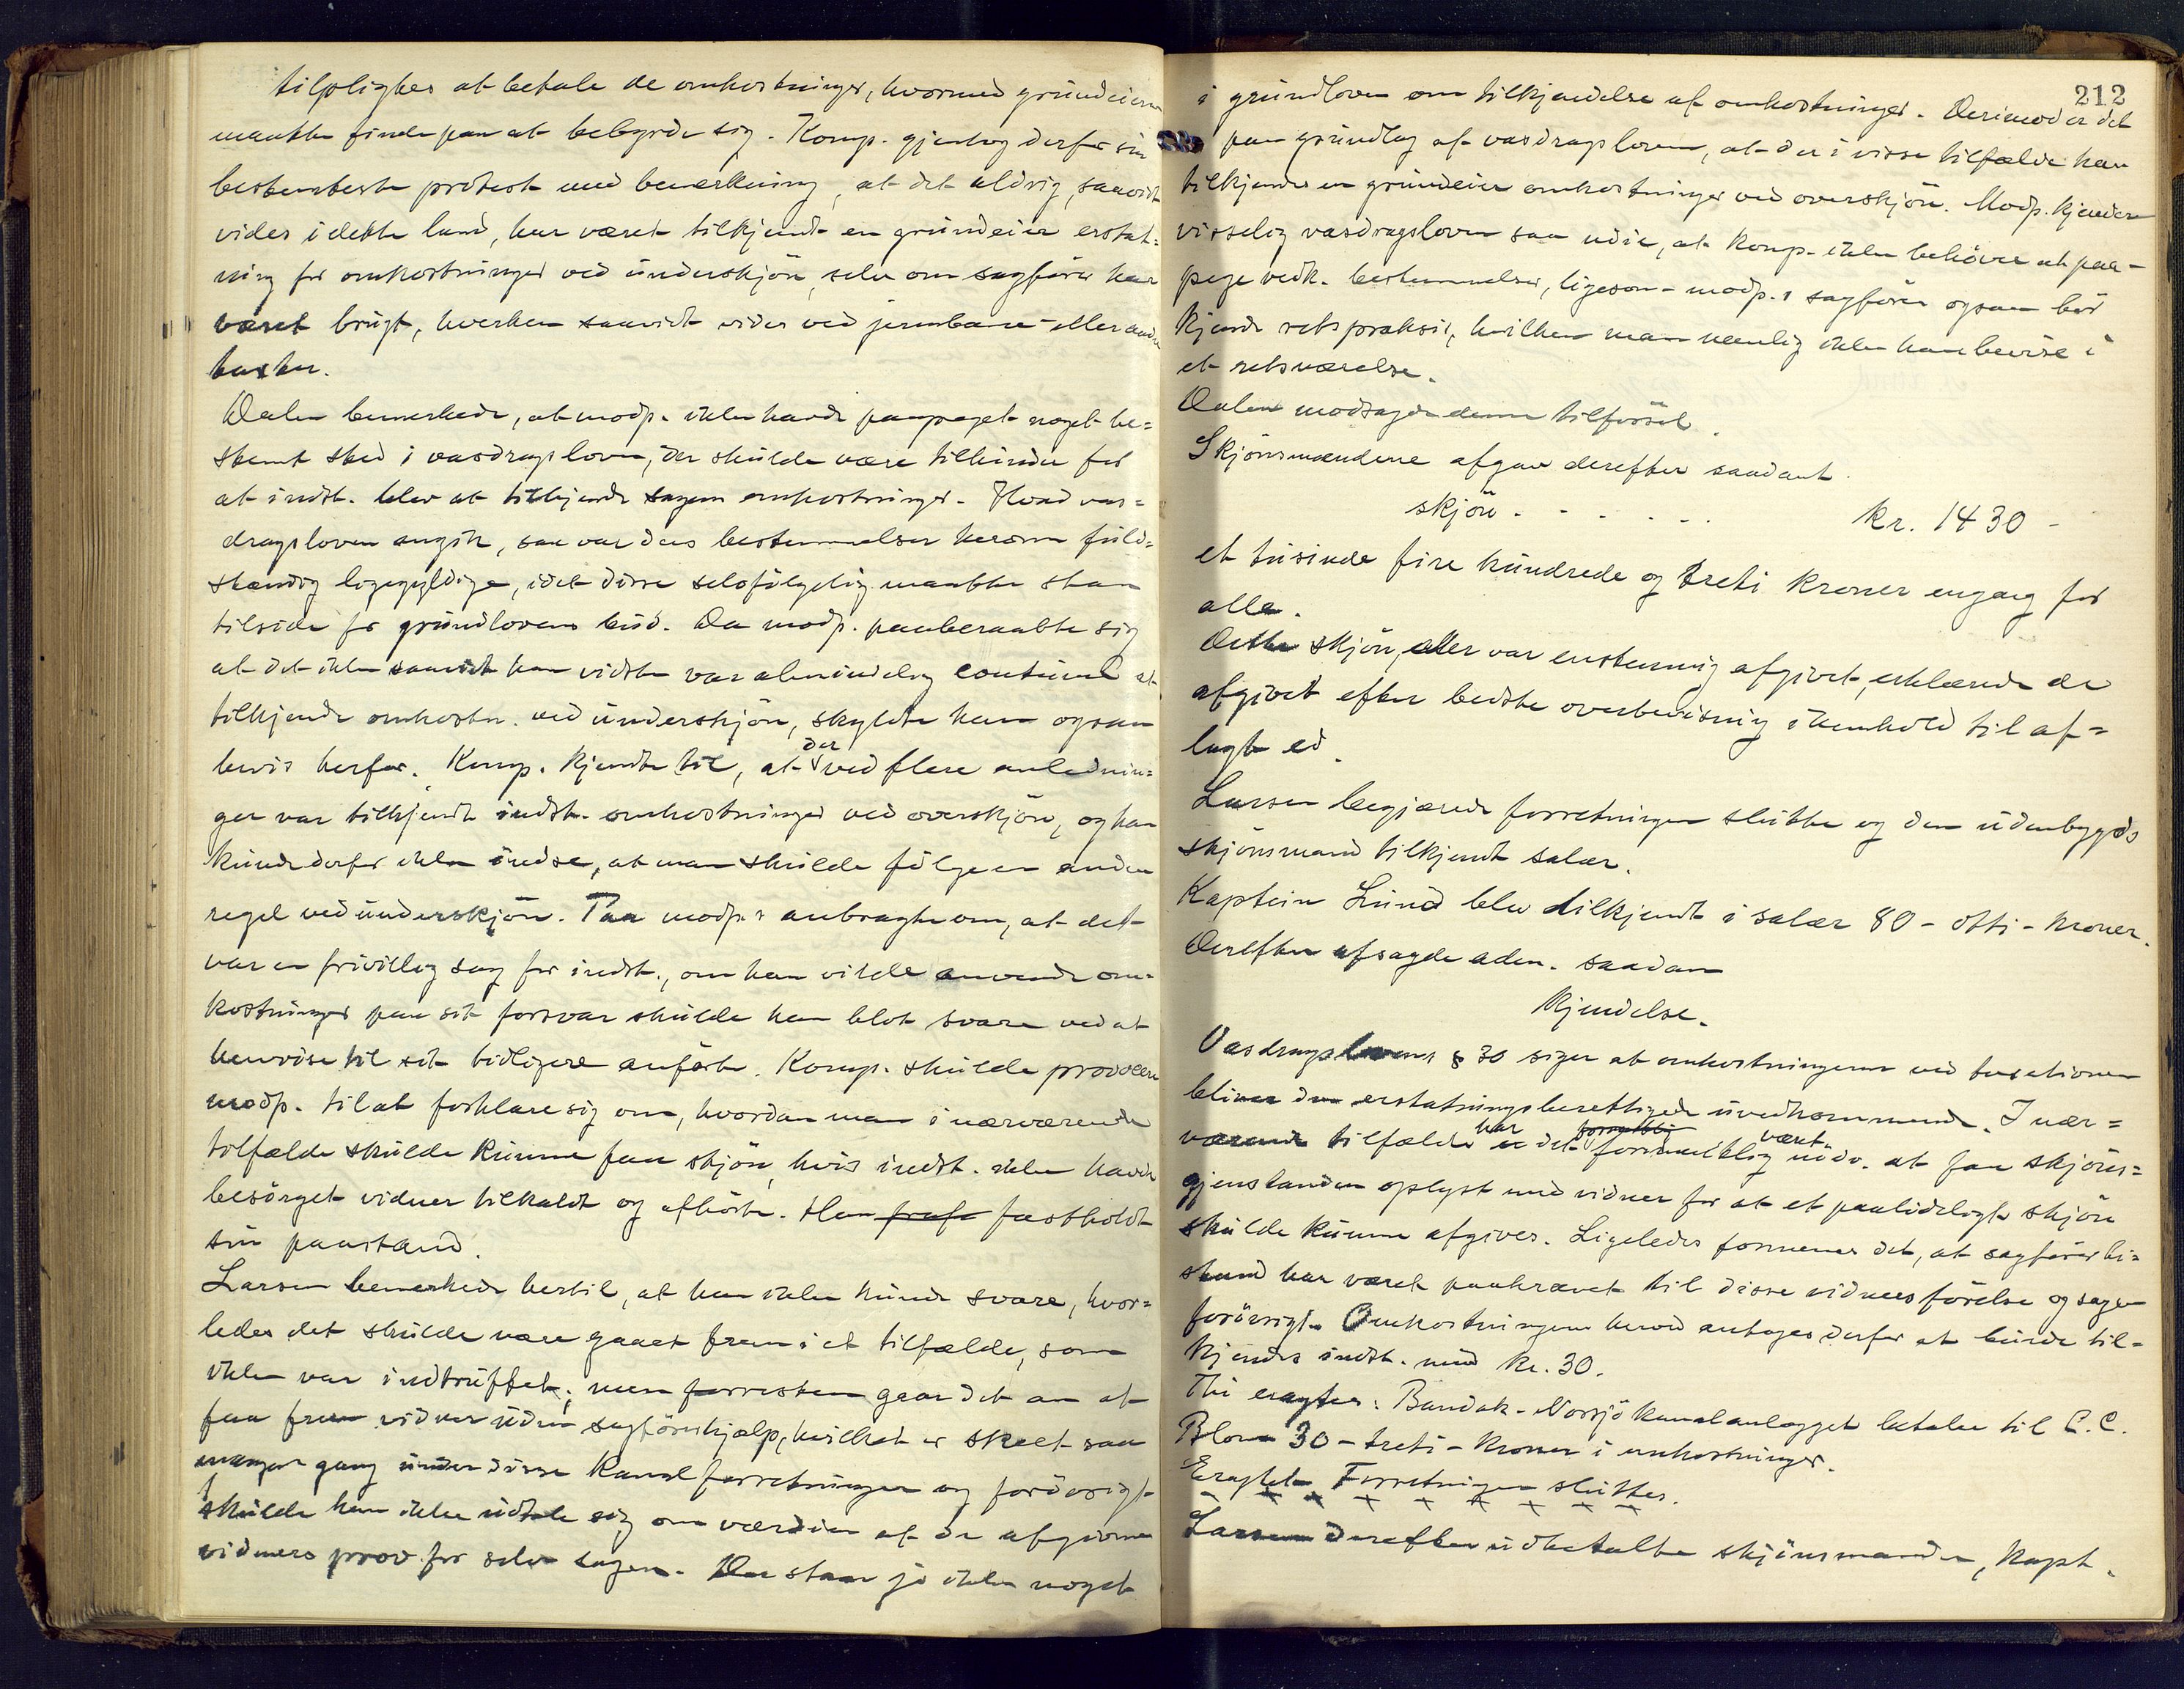 tilpligtes at betale de omkostninger, hvormed grundeieren
maatte finde paa at bebyrde sig. Komp. gjentog derfor sin
bestemteste protest med bemerkning, at det aldrig, saavidt
vides i dette land, har været tilkjendt en grundeier erstat=
ning for omkostninger ved underskjøn, selv om sagfører har
været brugt, hverken saavidt vides ved jernbane- eller andre
takster.
Dalen bemerkede, at modp. ikke havde paapeget noget be=
stemt sted i vasdragsloven, der skulde være tilhinder for
at indst. blev at tilkjende sagens omkostninger. Hvad vas=
dragsloven angik, saa var dens bestemmelser herom fuld=
stændig ligegyldige, idet disse selvfølgelig maatte staa
tilside for grundlovens bud. Da modp. paaberaabte sig
at det ikke saavidt han vidste var almindelig coutume at
tilkjende omkostn. ved underskjøn, skyldte han ogsaa
bevis herfor. Komp. kjendte til, at der ved flere anlednin=
ger var tilkjendt indst. omkostninger ved overskjøn, og han
kunde derfor ikke indse, at man skulde følge en anden
regel ved underskjøn. Paa modp.s anbragte om, at det
var en frivillig sag for indst., om han vilde anvende om=
kostninger paa sit forsvar skulde han blot svare ved at
henvise til sit tidligere anførte. Komp. skulde provocere
modp. til at forklare sig om, hvordan man i nærværende
tilfælde skulde kunne faa skjøn, hvis indst. ikke havde
besørget vidner tilkaldt og afhørt. Han fastholdt
sin paastand.
Larsen bemerkede hertil, at han ikke kunde svare, hvor=
ledes det skulde være gaaet frem i et tilfælde, som
ikke var indtruffet; men forresten gaar det an at
faa frem vidner uden sagførerhjælp, hvilket er skeet saa
mangen gang under disse kanalforretninger og forøvrigt
skulde han ikke udtale sig om værdien af de afgivne
vidners prov for selve sagen. Der staar jo ikke noget
212
i grundloven om tilkjendelse af omkostninger. Derimod er det
paa grundlag af vasdragsloven, at der i visse tilfælde kan
tilkjendes en grundeier omkostninger ved overskjøn. Modp. kjender
visselig vasdragsloven saa nøie, at komp. ikke behøver at paa-
pege vedk. bestemmelser, ligesom modp.s sagfører ogsaa bør
kjende retspraksis, hvilken man nemlig ikke kan bevise i
et retsværelse.
Dalen modsagde denne tilførsel.
Skjønsmændene afgav derefter saadant
skjøn . - - - - - - kr. 1430 -
et tusinde fire hundrede og treti kroner engang for
alle.
Dette skjøn, eller var enstemmig afgivet, erklærede de
afgivet efter bedste overbevisning i henhold til af=
lagt ed.
Larsen begjærede forretningen sluttet og den udenbygds
skjønsmand tilkjendt salær.
Kaptein Lund blev tilkjendt i salær 80 - otti - kroner.
Derefter afsagde adm. saadan
Kjendelse.
Vasdragslovens § 30 siger at omkostningerne ved taxationen
bliver den erstatningsberettigede uvedkommende. I nær=
værende tilfælde har det formentlig været nødv. at faa skjøns=
gjenstanden oplyst med vidner for at et paalideligt skjøn
skulde kunne afgives. Ligeledes formenes det, at sagførerbi=
stand har været paakrævet til disse vidners førelse og sagen
forøvrigt. Omkostningerne herved antages derfor at burde til-
kjendes indst. med kr. 30.
Thi eragtes: Bandak-Norsjø kanalanlægget betaler til C. C.
Blom 30 - treti - kroner i omkostninger.
Eragtet: Forretningen sluttes.
Larsen derefter udbetalte skjønsmanden, kapt.